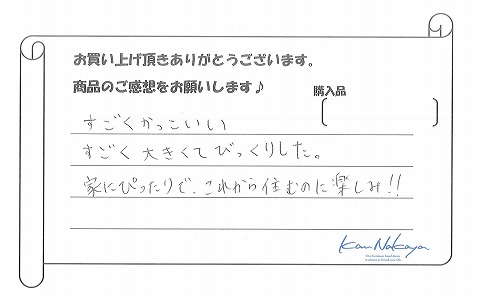 お買い上げ頂きありがとうございます。
商品のご感想をお願いします♪
購入品
すごくかっこいい
すごく大きくてびっくりした。
家にぴったりで、これから住むのに楽しみ!!
Kan Nakaya